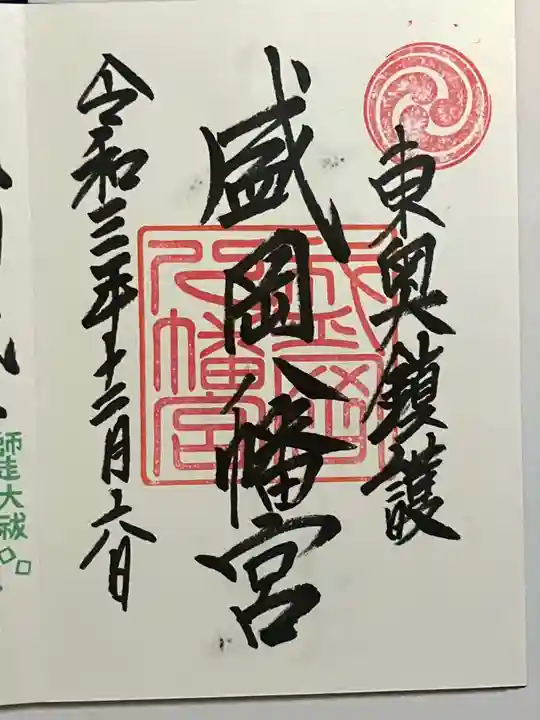 東奥鎮護
盛岡八幡宮
盛岡八幡宮
令和三年十二月六日
師走大祓